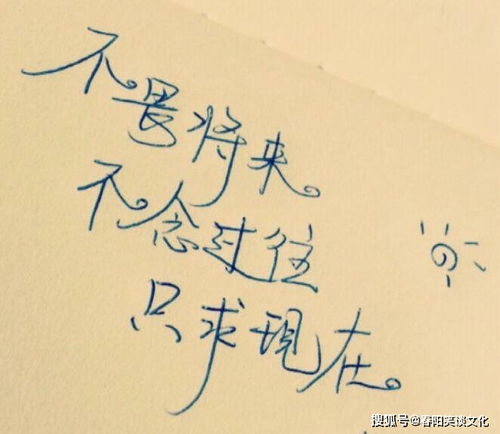 不畏将来。
不念过往
只求现在。
搜狐号@春阳笑谈文化